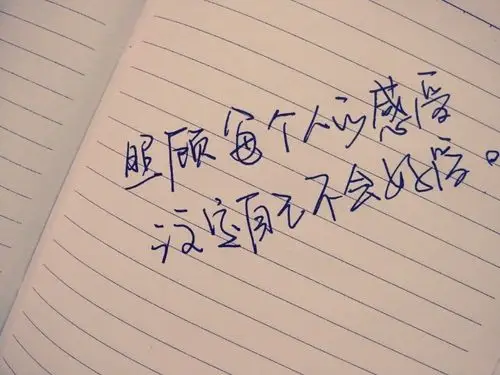 照顾每个人的感受
注定自己不会好受。